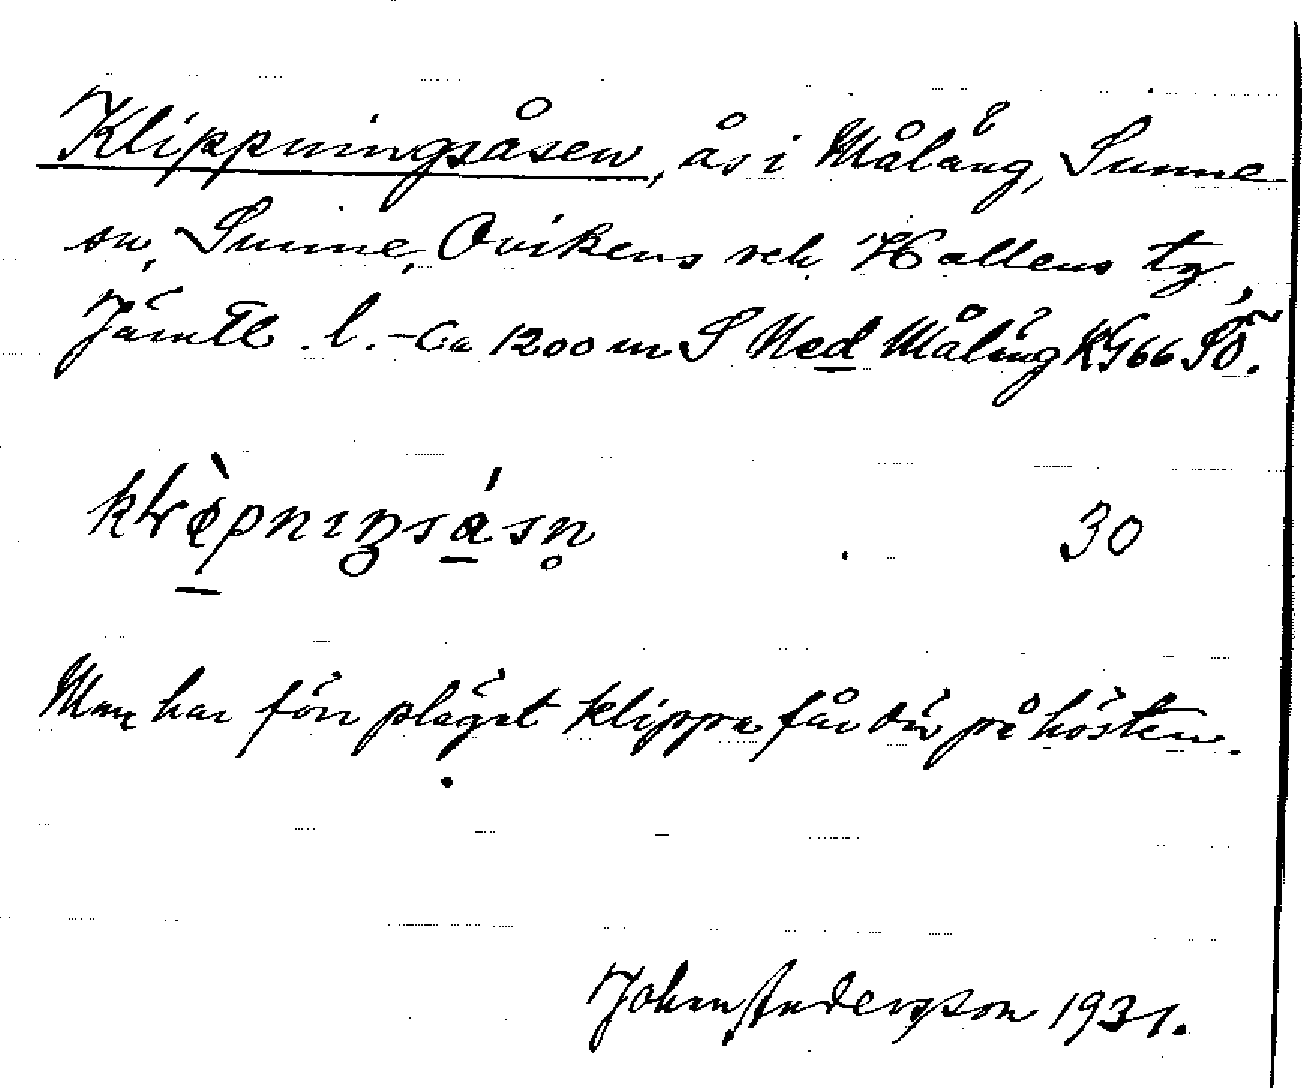 Klippningsåsen, ås i Målång, Sunne
sn, Sunne, Ovikens och Hallens tg,
Jämtl. l. - Ca 1200 m S Ned Målång KG66 SÖ.
30
Man har förr plägat klippa får där på hösten.
Johan Andersson 1931.